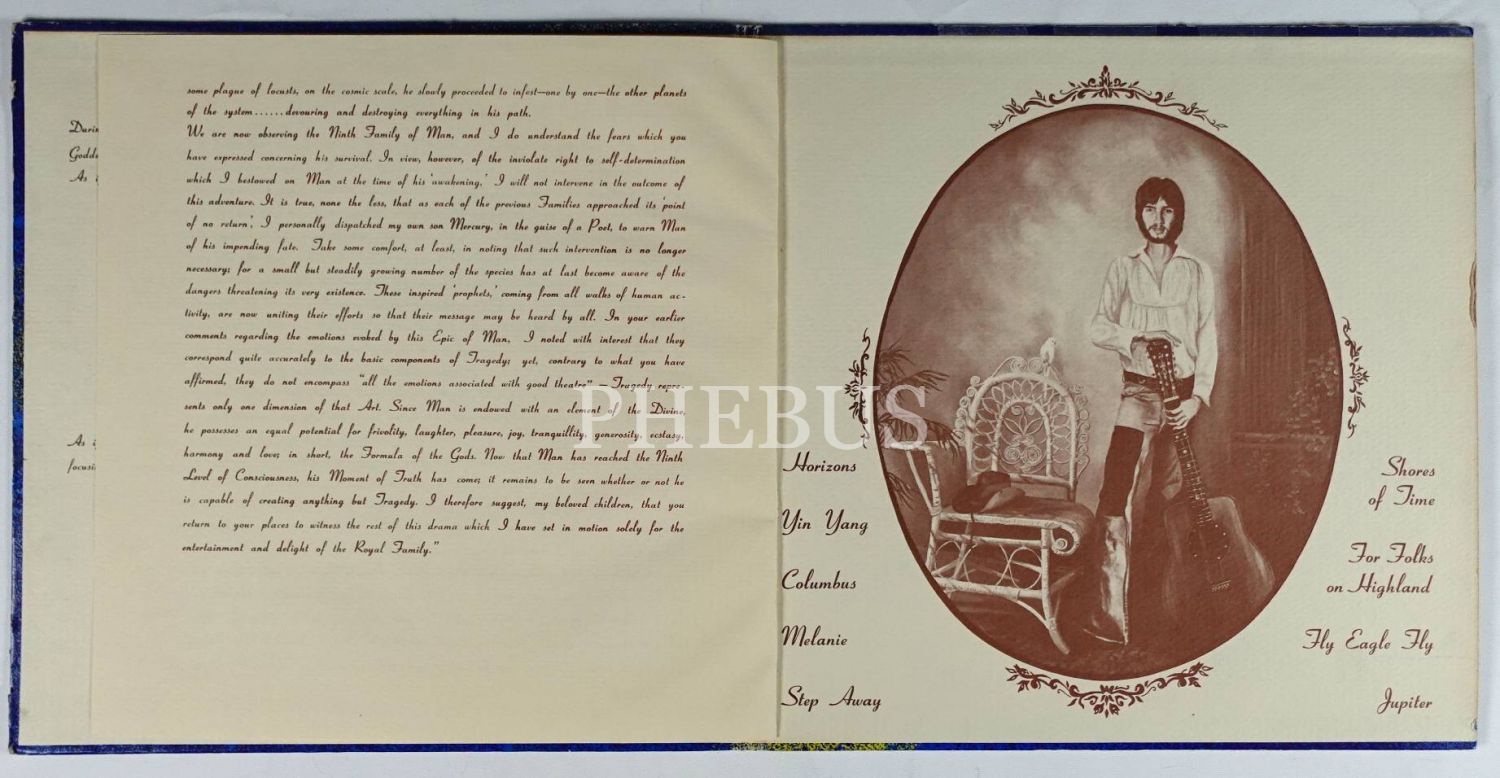 Durin
Godde
As
As i
focusi
some plague of locusts, on the cosmic scale, he slowly proceeded to infest—one by one—the other planets
of the system......devouring and destroying everything in his path.
We are now observing the Ninth Family of Man, and I do understand the fears which you
have expressed concerning his survival. In view, however, of the inviolate right to self-determination
which I bestowed on Man at the time of his 'awakening,' I will not intervene in the outcome of
this adventure. It is true, none the less, that as each of the previous Families approached its 'point
of no return', I personally dispatched my own son Mercury, in the guise of a Poet, to warn Man
of his impending fate. Take some comfort, at least, in noting that such intervention is no longer
necessary; for a small but steadily growing number of the species has at last become aware of the
dangers threatening its very existence. These inspired 'prophets,' coming from all walks of human ac-
tivity, are now uniting their efforts so that their message may be heard by all. In your earlier
comments regarding the emotions evoked by this Epic of Man, I noted with interest that they
correspond quite accurately to the basic components of Tragedy; yet, contrary to what you have
affirmed, they do not encompass "all the emotions associated with good theatre"—Tragedy repre-
sents only one dimension of that Art. Since Man is endowed with an element of the Divine,
he possesses an equal potential for frivolity, laughter, pleasure, joy, tranquillity, generosity, ecstasy,
harmony and love; in short, the Formula of the Gods. Now that Man has reached the Ninth
Level of Consciousness, his Moment of Truth has come; it remains to be seen whether or not he
is capable of creating anything but Tragedy. I therefore suggest, my beloved children, that you
return to your places to witness the rest of this drama which I have set in motion solely for the
entertainment and delight of the Royal Family."
PHEBUS
Horizons
Yin Yang
Columbus
Melanie
Step Away
Shores
of Time
For Folks
on Highland
Fly Eagle Fly
Jupiter